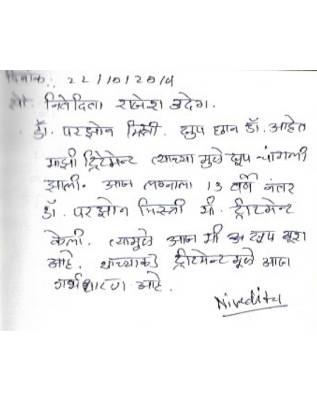 दिनांक: 22/10/2014
सौ. निवेदिता राजेश उदेग.
डॉ. परझोन मिस्त्री. खुप छान डॉ. आहेत
माझी ट्रिटमेन्ट त्याच्या मुळे खुप चांगली
झाली. आज लग्नाला 13 वर्षे नंतर
डॉ. परझोन मिस्त्री मी. ट्रीटमेन्ट
केली. त्यामुळे आज मी खुप खुश
आहे. यांच्याकडे ट्रीटमेन्टमुळे आज
गर्भधारणा आहे.
Nivedita